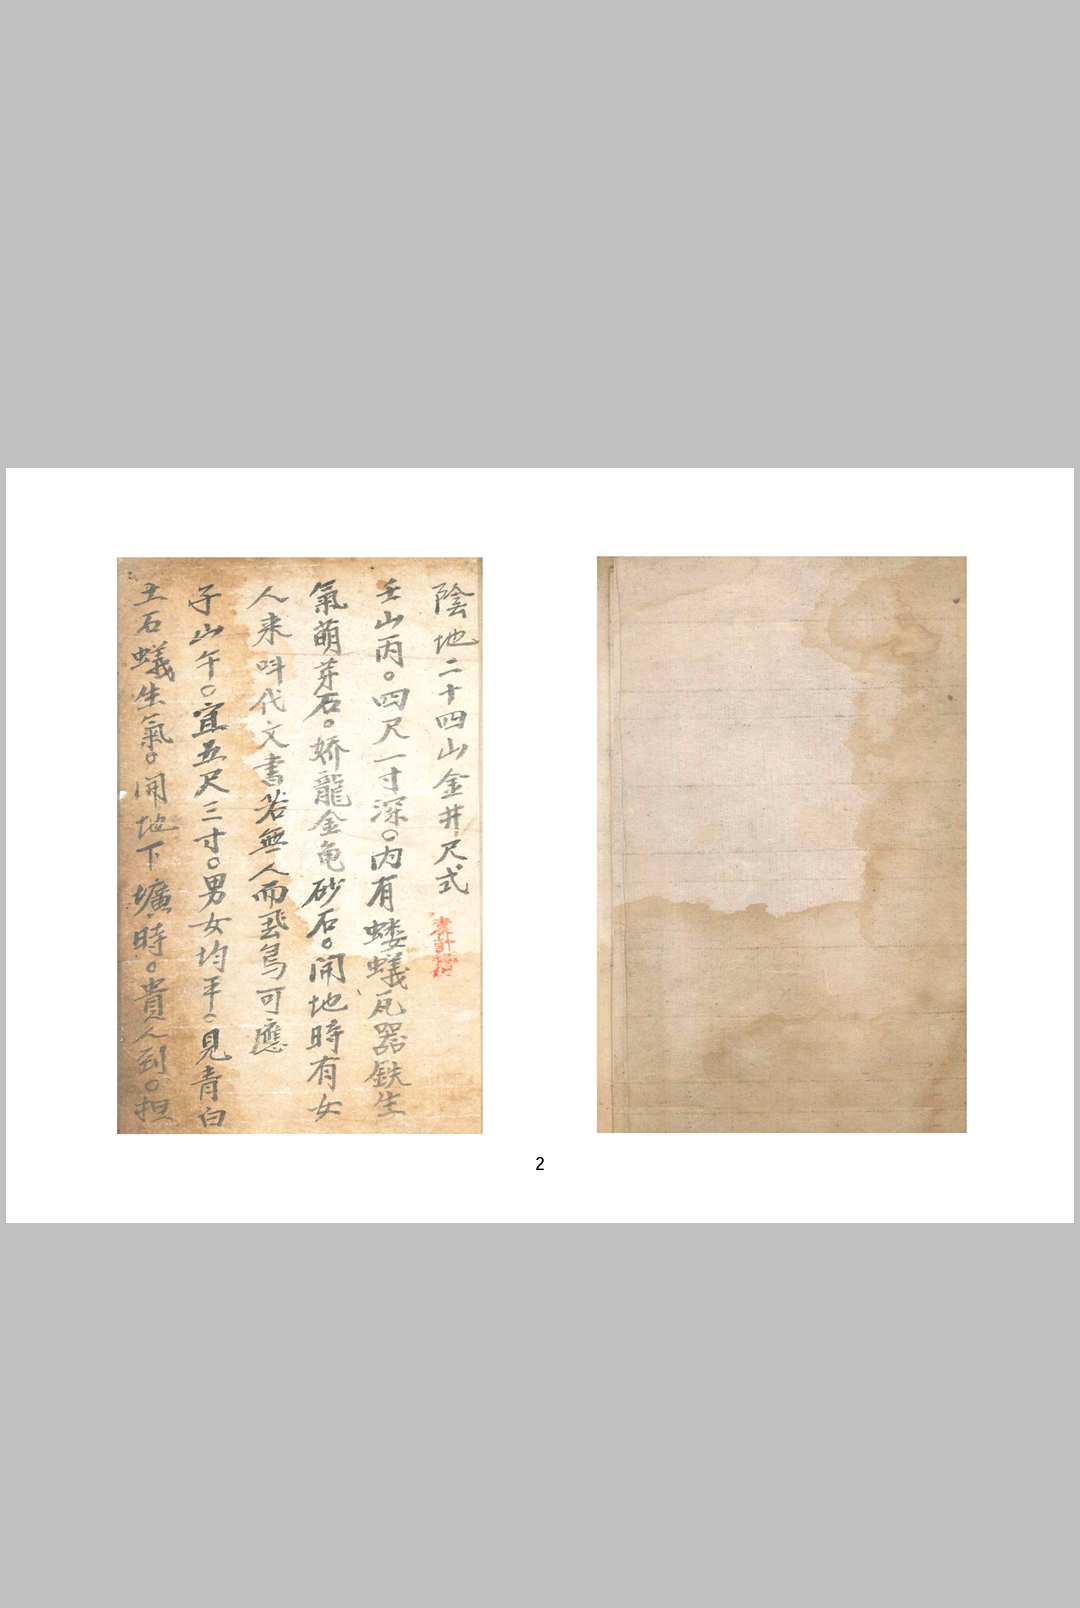 陰地二十四山金井尺式
壬山丙。四尺一寸深。內有螻蟻瓦器鉄生
氣萌芽石。娇龍金龟砂石。開地時有女
人来呌代文書若無人而飛鳥可應
子山午。宜五尺三寸。男女均平。見青白
土石蟻生氣。開地下壙時。貴人到。担
2